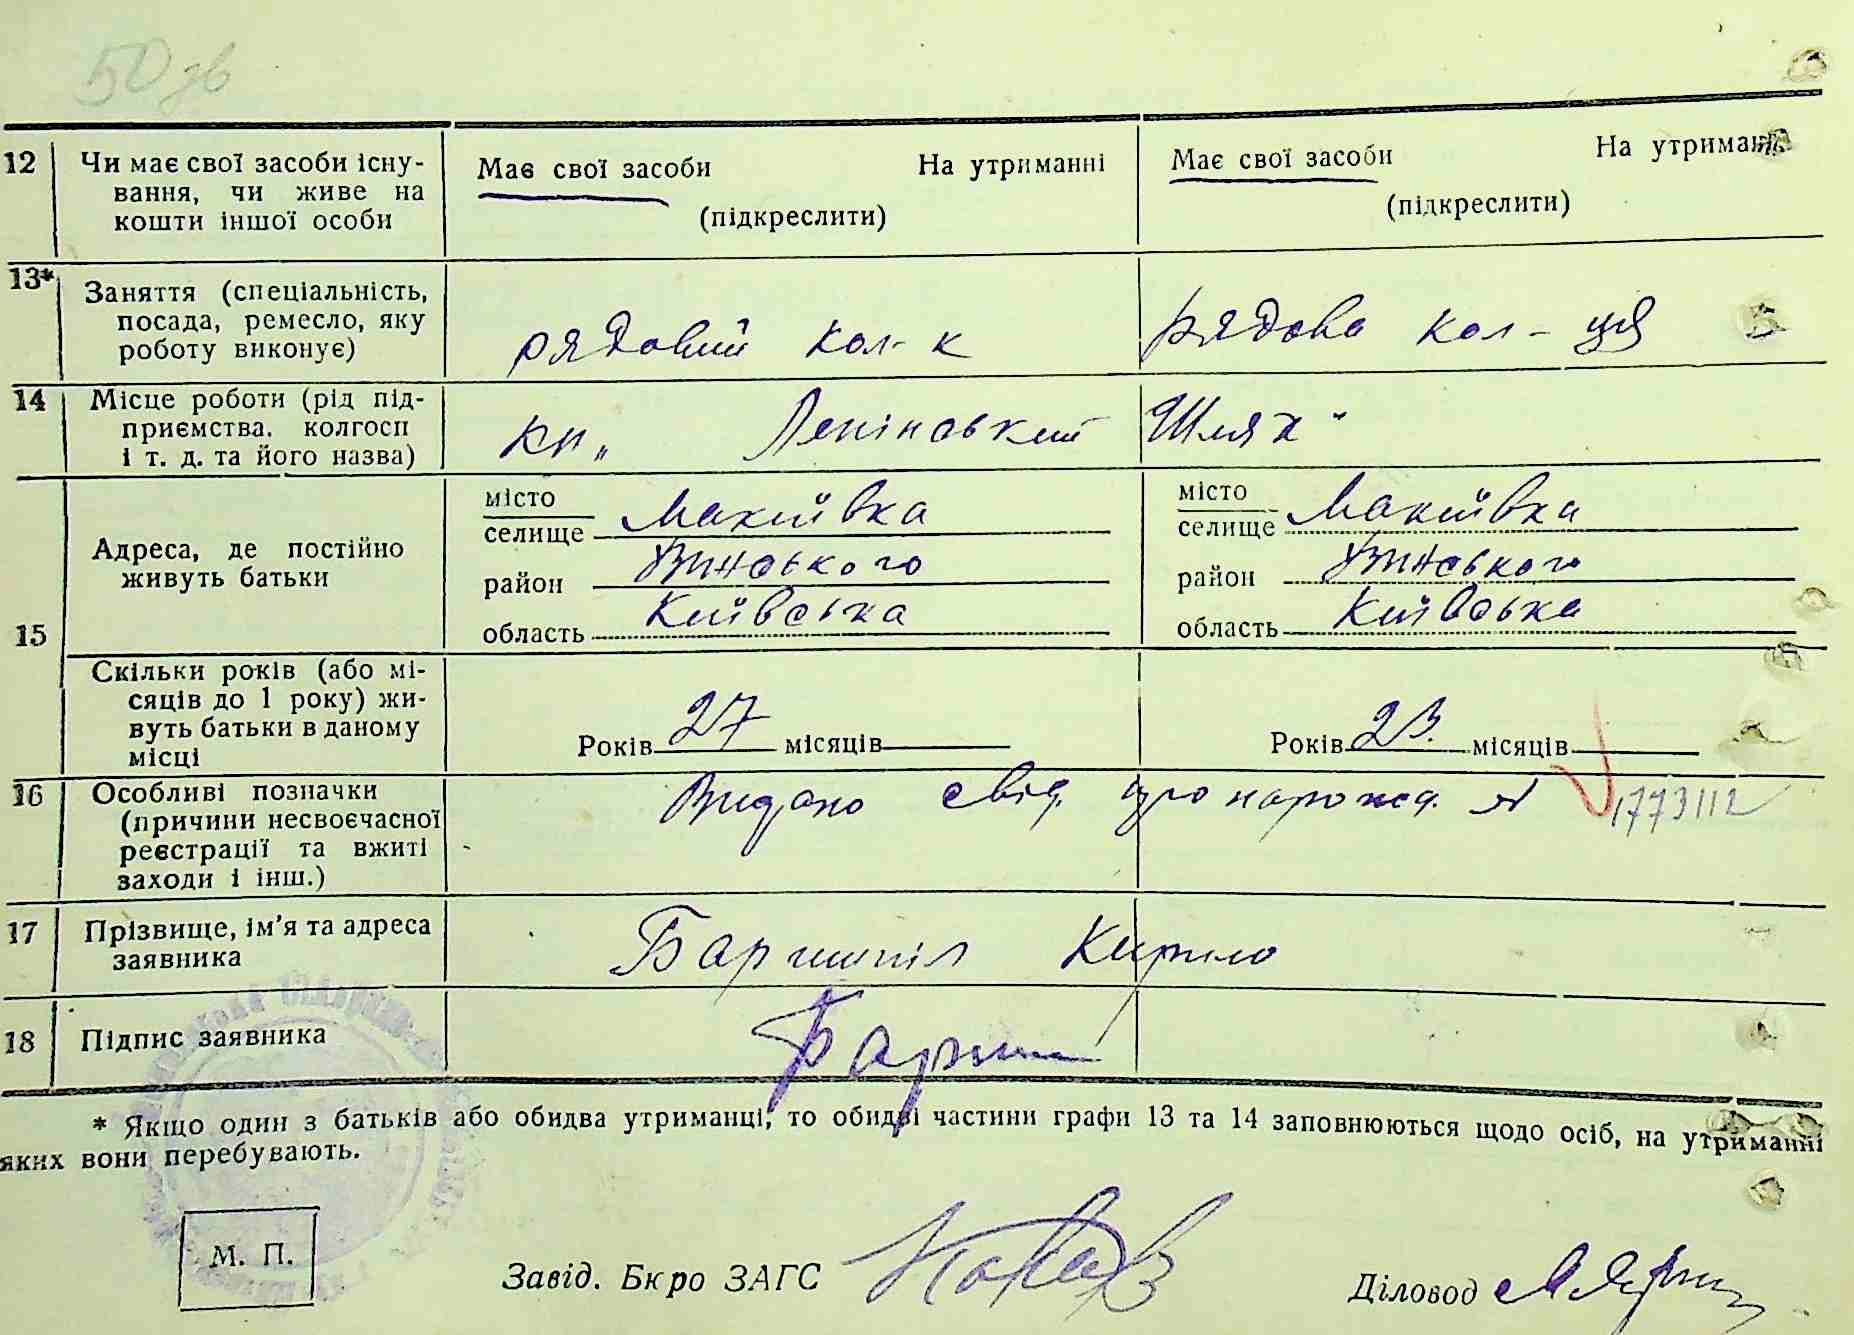 50 зв
12 Чи має свої засоби існу- Має свої засоби На утриманні Має свої засоби На утриманні
вання, чи живе на (підкреслити) (підкреслити)
кошти іншої особи
13* Заняття (спеціальність,
посада, ремесло, яку рядовий кол-к рядова кол-ця
роботу виконує)
14 Місце роботи (рід під-
приємства, колгосп кп „ Ленінський Шлях"
і т. д. та його назва)
15 Адреса, де постійно
живуть батьки
місто
селище Макіївка
район
область Київська
місто
селище Макіївка
район
область Київська
Скільки років (або мі-
сяців до 1 року) жи-
вуть батьки в даному
місці
Років 27 місяців
Років 23. місяців
16 Особливі позначки Видано свід. про нарожд. № 1773112
(причини несвоєчасної
реєстрації та вжиті
заходи і інш.)
17 Прізвище, ім'я та адреса
заявника
Баришпіл Кирило
18 Підпис заявника
* Якщо один з батьків або обидва утриманці, то обидві частини графи 13 та 14 заповнюються щодо осіб, на утриманні
яких вони перебувають.
М. П.
Завід. Бюро ЗАГС
Діловод